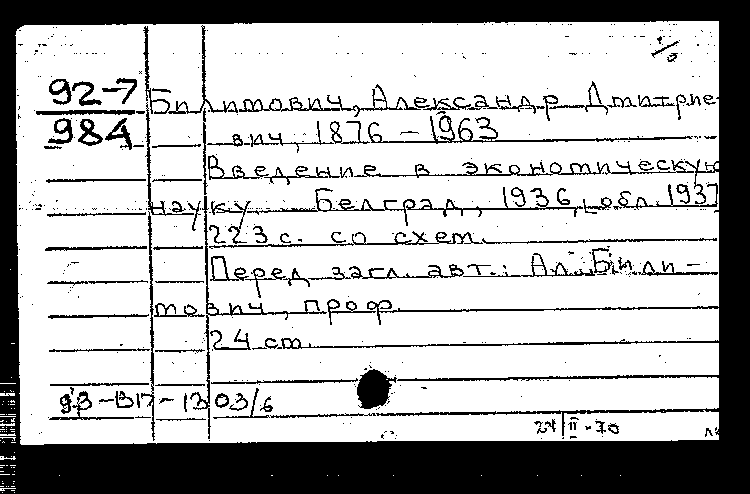 92-7
984
Билимович, Александр Дмитрие-
вич, 1876 – 1963
Введение в экономическую
науку. Белград, 1936, [обл. 1937
223 с. со схем.
Перед загл. авт.: Ал. Били-
мович, проф.
24 см.
93-В17-1303/6
24/II-70